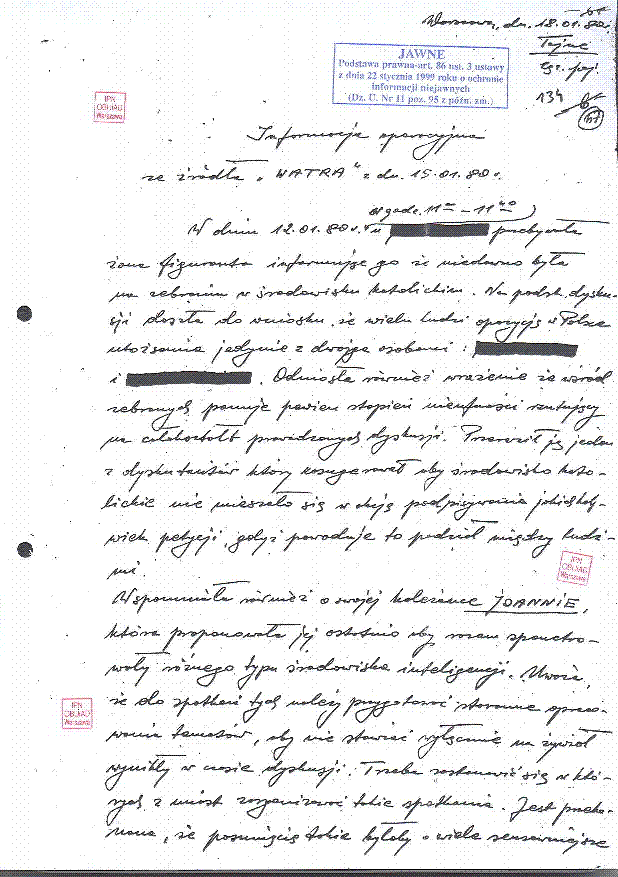 Warszawa, dn. 18.01.80r.
Tajne
Egz. poj.
JAWNE
Podstawa prawna-art. 86 ust. 3 ustawy
z dnia 22 stycznia 1999 roku o ochronie
informacji niejawnych
(Dz. U. Nr 11 poz. 95 z późn. zm.)
134
IPN
OBUiAD
Warszawa
Informacja operacyjna
ze źródła „WATRA" z dn. 15.01.80r.
w godz. 11 – 11 40
W dniu 12.01.80r. u przebywała
żona figuranta informując go że niedawno była
na zebraniu w środowisku katolickim. Na podst. dysku-
sji doszła do wniosku, że wielu ludzi opozycję w Polsce
utożsamia jedynie z dwojga osobami :
i . Odniosła również wrażenie że wśród
zebranych panuje pewien stopień nieufności rzutujący
na całokształt prowadzonych dyskusji. Przeraził ją jeden
z dyskutantów który zasugerował aby środowisko kato-
lickie nie mieszało się w akcję podpisywania jakichkol-
wiek petycji, gdyż powoduje to podział między ludź-
mi.
IPN
OBUiAD
Warszawa
Wspomniała również o swojej koleżance JOANNIE,
która proponowała jej ostatnio aby razem spenetro-
wały różnego typu środowiska inteligencji. Uważa,
że do spotkań tych należy przygotować staranne opraco-
wania tematów, aby nie stawiać wyłącznie na żywioł
IPN
OBUiAD
Warszawa
wynikły w czasie dyskusji. Trzeba zastanowić się w któ-
rych z miast zorganizować takie spotkania. Jest przeko-
nana, że posunięcie takie byłoby o wiele sensowniejsze